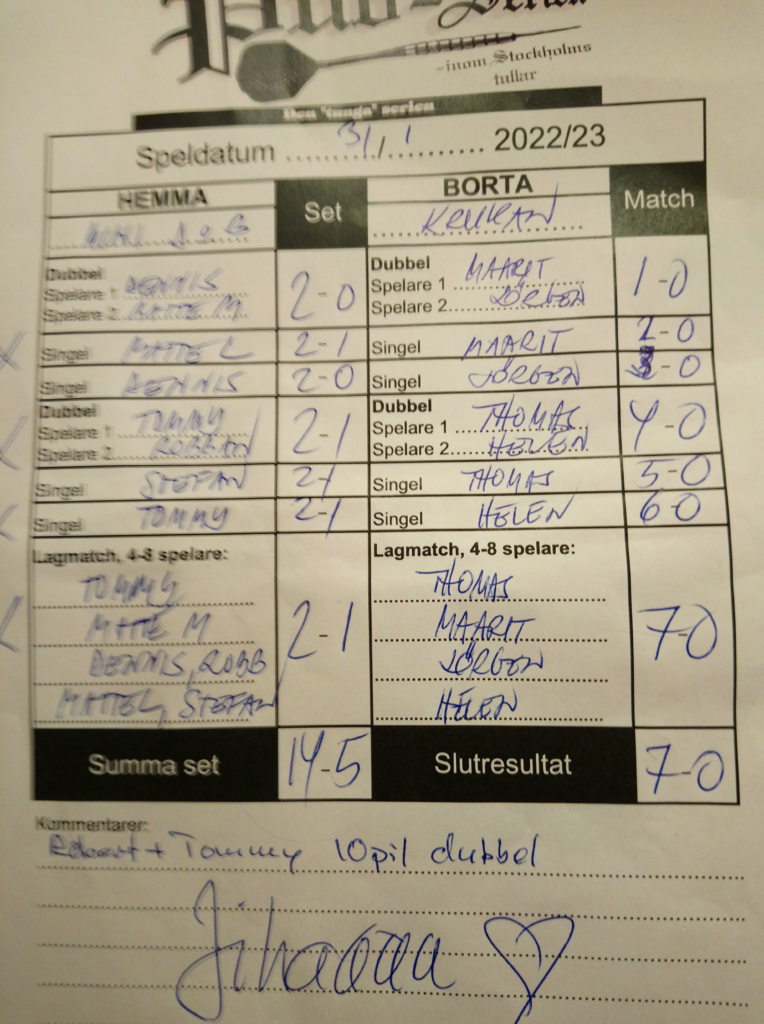 -inom Stockholms
tullar
Den "tunga" serien
Speldatum 31/1 2022/23
HEMMA Set BORTA Match
KRUKAN
Dubbel Dubbel
Spelare 1 DENNIS 2-0 Spelare 1 MAARIT 1-0
Spelare 2 MATTE M Spelare 2 JÖRGEN
Singel MATTE L 2-1 Singel MAARIT 2-0
Singel DENNIS 2-0 Singel JÖRGEN 3-0
Dubbel Dubbel
Spelare 1 TOMMY 2-1 Spelare 1 THOMAS 4-0
Spelare 2 ROBBAN Spelare 2 HELEN
Singel STEFAN 2-1 Singel THOMAS 5-0
Singel TOMMY 2-1 Singel HELEN 6-0
Lagmatch, 4-8 spelare: Lagmatch, 4-8 spelare:
TOMMY THOMAS
MATTE M 2-1 MAARIT 7-0
DENNIS, ROBB JÖRGEN
MATTE L, STEFAN HELEN
Summa set 14-5 Slutresultat 7-0
Kommentarer:
Robert + Tommy 10pil dubbel